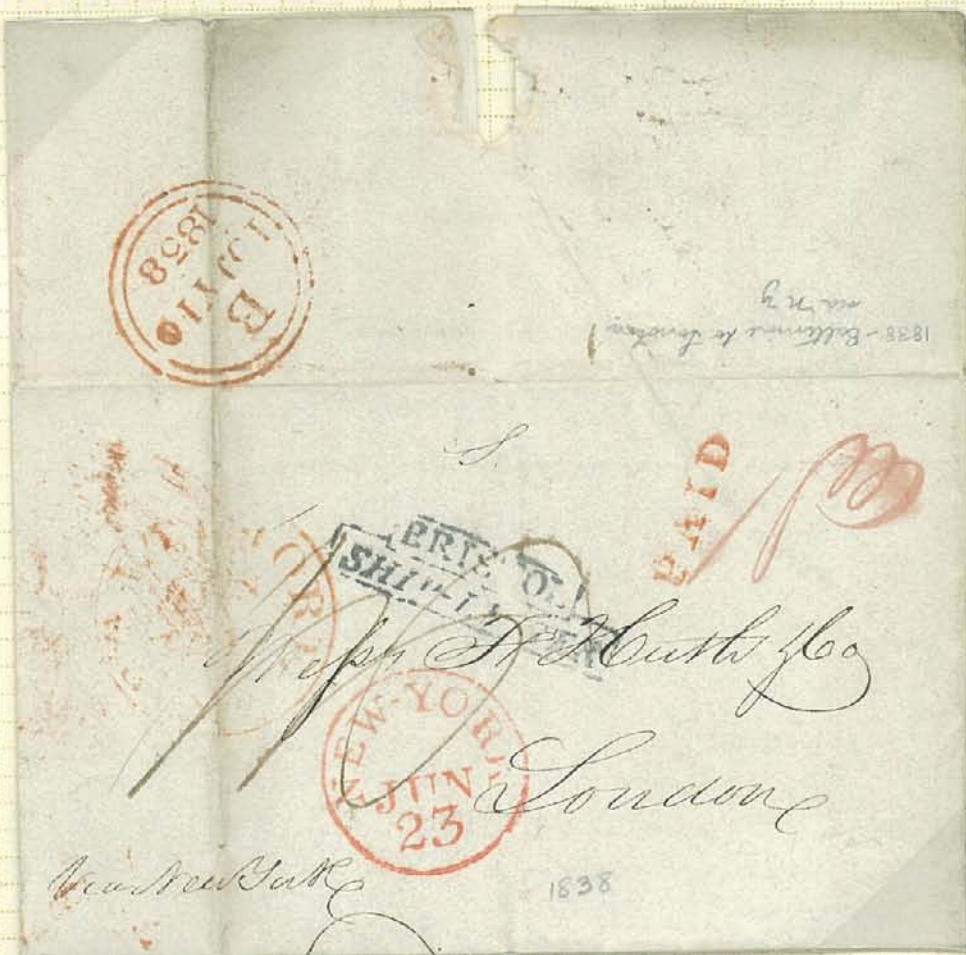 B
1838
1838 - Baltimore to London
via N Y
PAID
BRISTOL
SHIP-LETTER
Messrs Fr Huth & Co
London
NEW-YORK
JUN
23
Via New York
1838